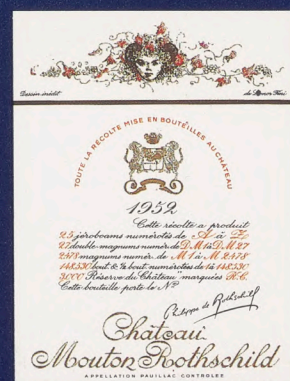 Dessin inédit
de Léonor Fini
TOUTE LA RÉCOLTE MISE EN BOUTEILLES AU CHÂTEAU
1952
Cette récolte a produit
25 jéroboams numérotés de A à Z
27 double-magnums numér. de D.M 1 à D.M 27
2478 magnums numér. de M 1 à M 2478
148.530 bout. & ½ bout. numérotées de 1 à 148.530
3000 "Réserve du Château" marquées R.C.
Cette bouteille porte le Nº
Philippe de Rothschild
Château
Mouton Rothschild
APPELLATION PAUILLAC CONTROLÉE